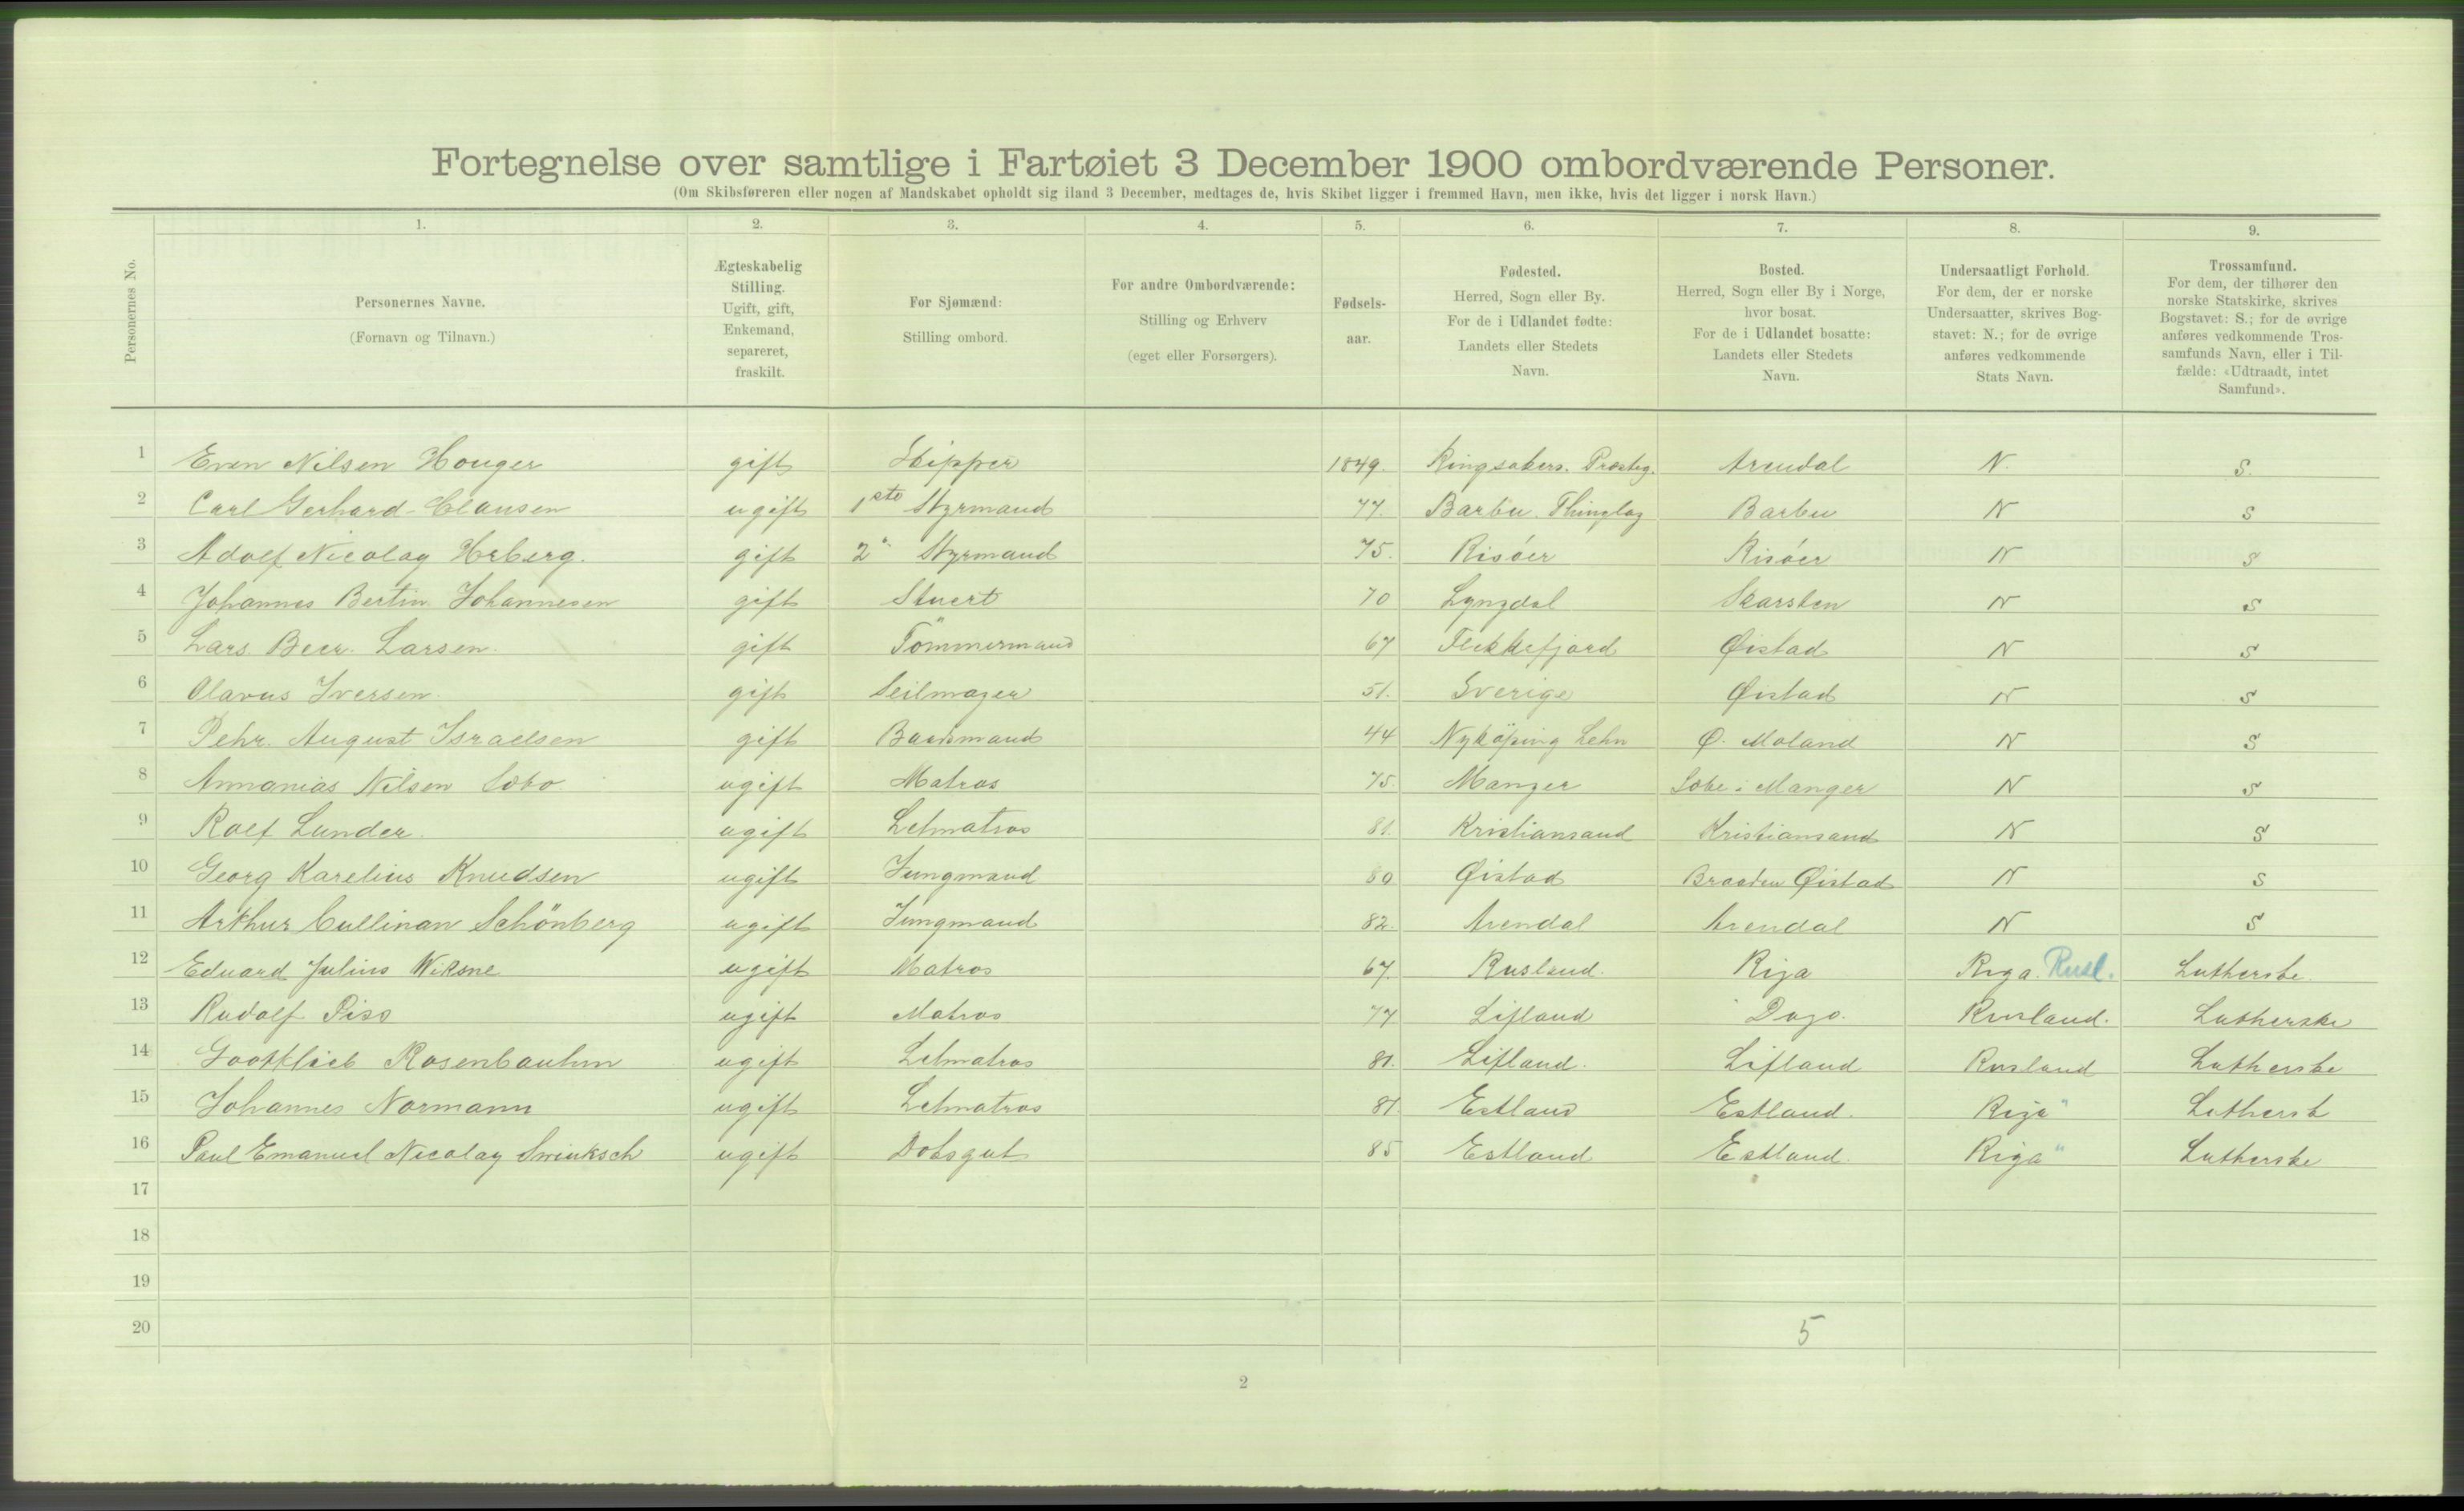 Fortegnelse over samtlige i Fartøiet 3 December 1900 ombordværende Personer.
(Om Skibsføreren eller nogen af Mandskabet opholdt sig iland 3 December, medtages de, hvis Skibet ligger i fremmed Havn, men ikke, hvis det ligger i norsk Havn.)
Personernes No.
1. 2. 3. 4. 5. 6. 7. 8. 9.
Personernes Navne.
(Fornavn og Tilnavn.)
Ægteskabelig
Stilling.
Ugift, gift,
Enkemand,
separeret,
fraskilt.
For Sjømænd:
Stilling ombord.
For andre Ombordværende:
Stilling og Erhverv
(eget eller Forsørgers).
Fødsels-
aar.
Fødested.
Herred, Sogn eller By.
For de i Udlandet fødte:
Landets eller Stedets
Navn.
Bosted.
Herred, Sogn eller By i Norge,
hvor bosat.
For de i Udlandet bosatte:
Landets eller Stedets
Navn.
Undersaatligt Forhold.
For dem, der er norske
Undersaatter, skrives Bog-
stavet: N.; for de øvrige
anføres vedkommende
Stats Navn.
Trossamfund.
For dem, der tilhører den
norske Statskirke, skrives
Bogstavet: S.; for de øvrige
anføres vedkommende Tros-
samfunds Navn, eller i Til-
fælde: «Udtraadt, intet
Samfund».
1 Even Nilsen Houger gift Skipper 1849. Ringsakers. Præsteg. Arendal N. S.
2 Carl Gerhard Clausen ugift 1ste Styrmand 77. Barbu Thinglag Barbu N S
3 Adolf Nicolay Hrberg. gift 2" Styrmand 75. Risöer Risöer N S
4 Johannes Bertin Johannesen gift Stuert 70 Lyngdal N S
5 Lars Beer. Larsen. gift Tömmermand 67 Flekkefjord Øistad N S
6 Olavus Iversen. gift Seilmager 51. Sverige Øistad N S
7 Pehr. August Israelsen gift Baadsmand 44 Nyköping Lehn Ø. Moland N S
8 Annanias Nilsen Sæbo ugift Matros 75. Manger Sæbe i Manger N S
9 Rolf Lunder. ugift Letmatros 81. Kristiansand Kristiansand N S
10 Georg Karelius Knudsen ugift Jungmand 80 Øistad Braaten Øistad N S
11 Arthur Cullinan Schönberg ugift Jungmand 82. Arendal Arendal N S
12 Eduard Julius Wiksne ugift Matros 67. Rusland. Riga Riga. Rusl. Lutherske
13 Rudolf Piss ugift Matros 77 Lifland Dago. Rusland. Lutherske
14 Gootklieb Rosenbauhm ugift Letmatros 81. Lifland. Lifland Rusland Lutherske
15 Johannes Normann ugift Letmatros 81 Estland Estland. Riga " Luthersk
16 Paul Emanuel Nicolay Swinksch ugift Doksgut 85 Estland Estland. Riga " Lutherske
17
18
19
20
5
2